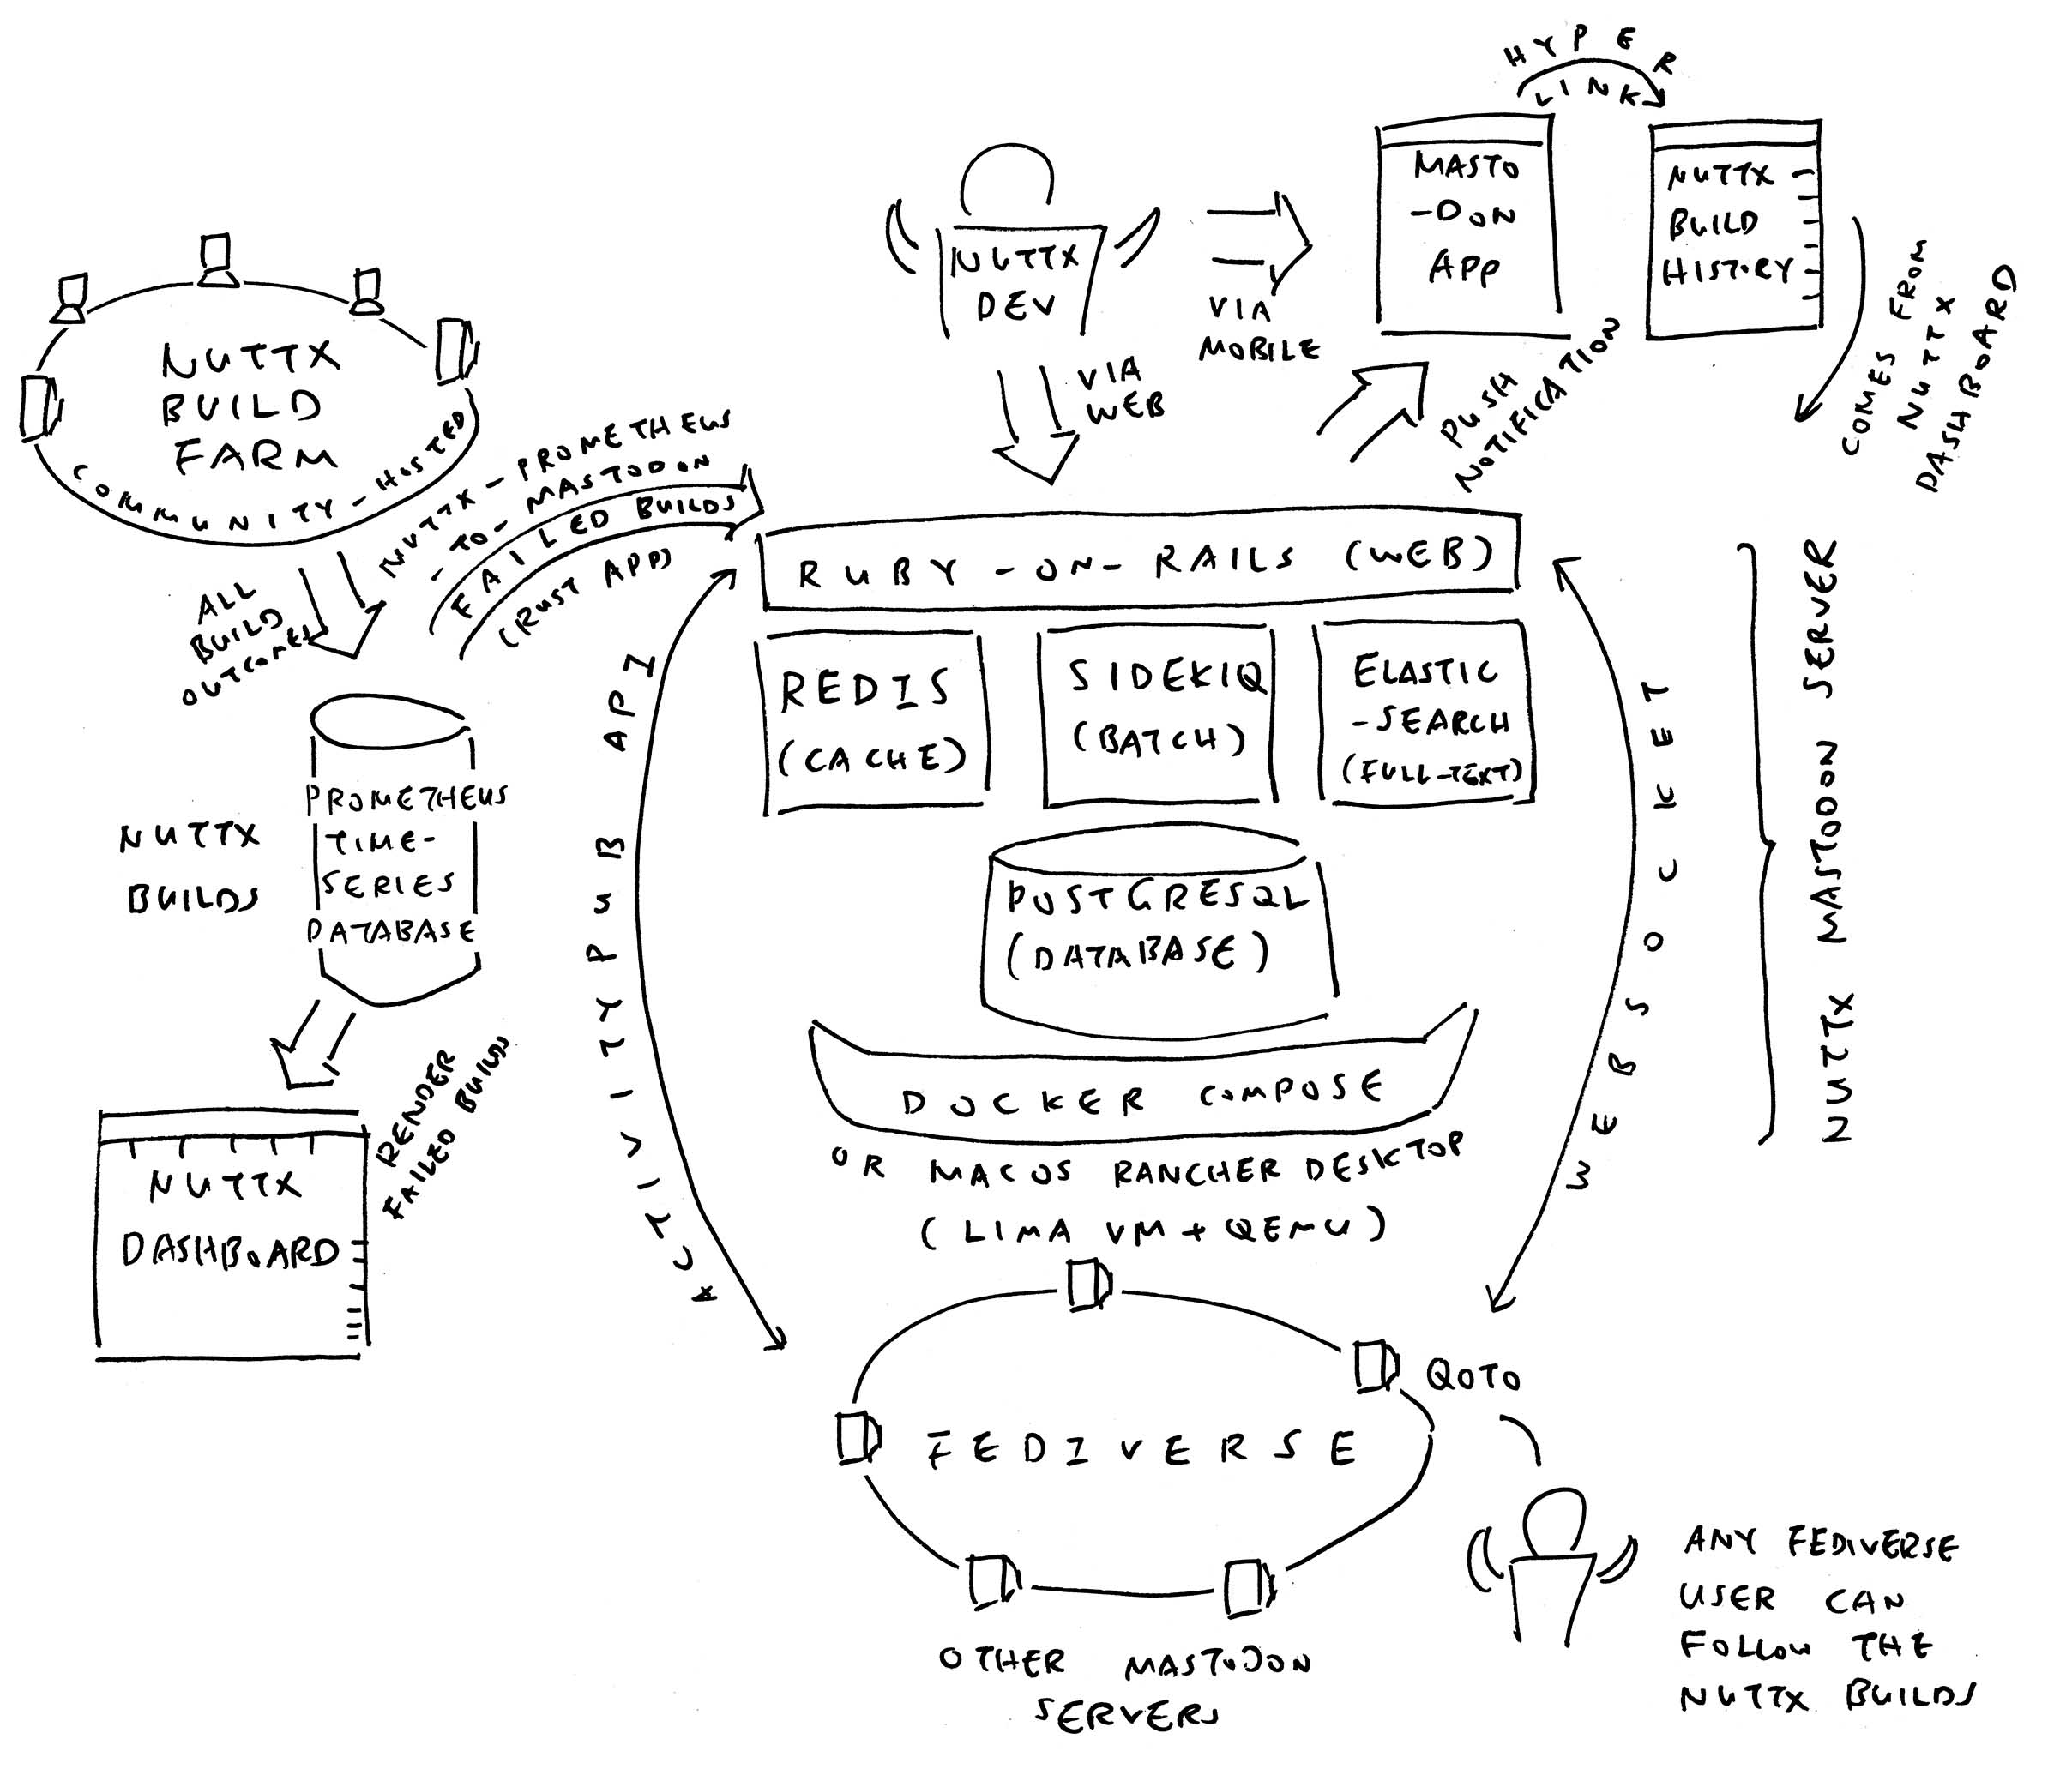 HYPER
LINK
MASTO
-DON
APP
NUTTX
BUILD
HISTORY
COMES FROM
NUTTX
DASHBOARD
NUTTX
DEV
VIA
MOBILE
VIA
WEB
PUSH
NOTIFICATION
NUTTX
BUILD
FARM
COMMUNITY-HOSTED
ALL
BUILD
OUTCOMES
NUTTX-PROMETHEUS
-TO-MASTODON
FAILED BUILDS
(RUST APP)
RUBY-ON-RAILS (WEB)
REDIS
(CACHE)
SIDEKIQ
(BATCH)
ELASTIC
-SEARCH
(FULL-TEXT)
POSTGRESQL
(DATABASE)
DOCKER COMPOSE
OR MACOS RANCHER DESKTOP
(LIMA VM + QEMU)
NUTTX MASTODON SERVER
ACTIVITYPUB API
WEBSOCKET
NUTTX
BUILDS
PROMETHEUS
TIME-
SERIES
DATABASE
RENDER
FAILED BUILDS
NUTTX
DASHBOARD
FEDIVERSE
QOTO
OTHER MASTODON
SERVERS
ANY FEDIVERSE
USER CAN
FOLLOW THE
NUTTX BUILDS